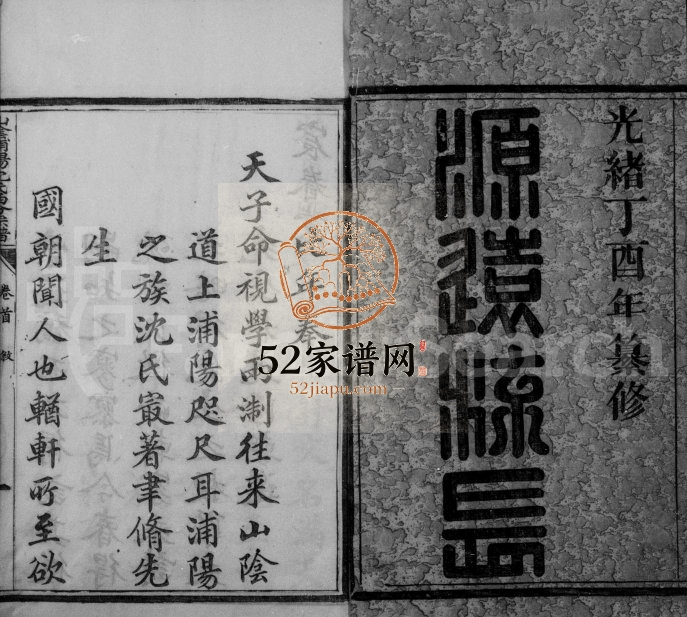 光緒丁酉年纂修
源遠流長
天子命視學兩淛往来山陰
道上浦陽咫尺耳浦陽
之族沈氏㝡著聿脩先
生
國朝聞人也輶軒所至欲
卷首
敘
一
52家谱网
52jiapu.com